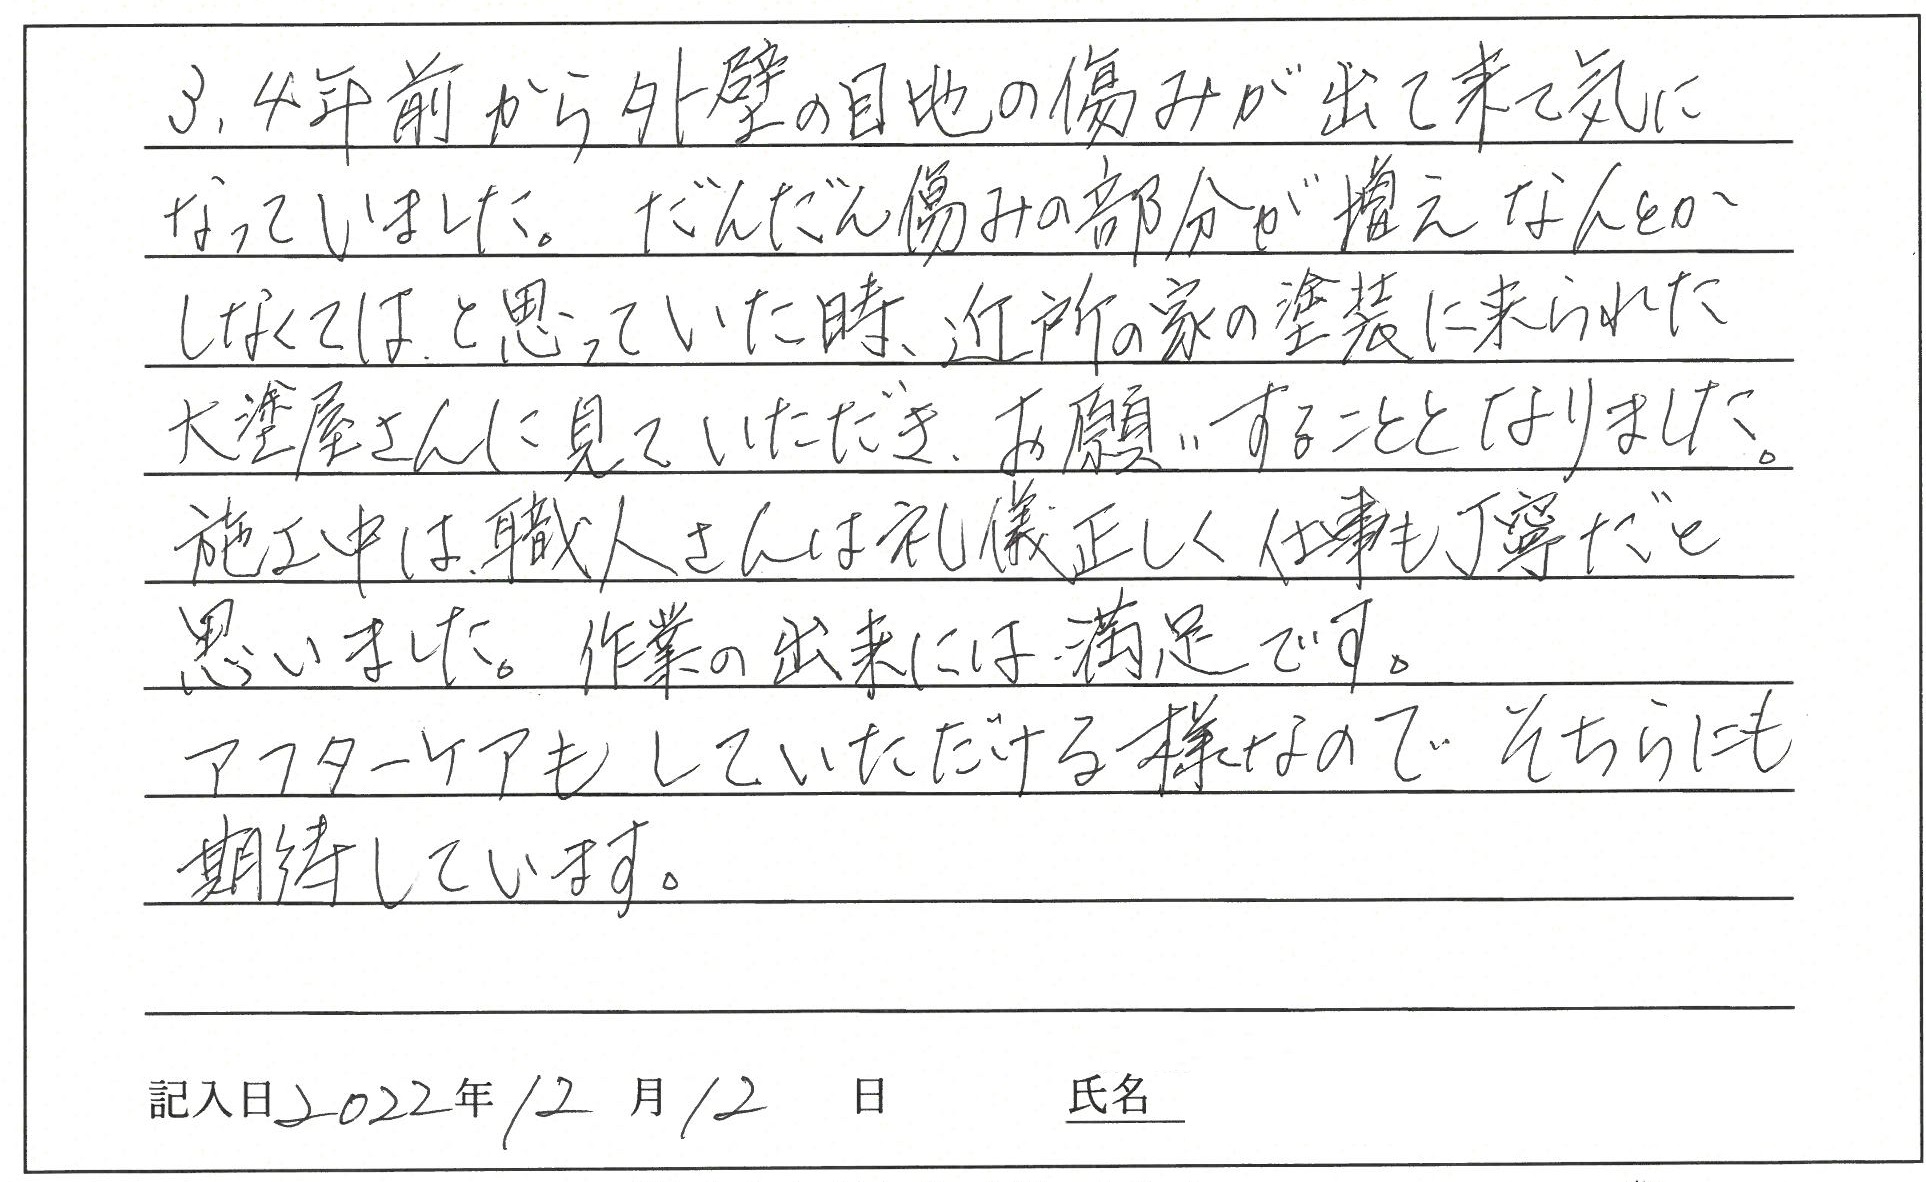 3.4年前から外壁の目地の傷みが出て来て気に
なっていました。だんだん傷みの部分が増えなんとか
しなくては、と思っていた時、近所の家の塗装に来られた
大塗屋さんに見ていただき、お願いすることとなりました。
施工中は、職人さんは礼儀正しく仕事も丁寧だと
思いました。作業の出来には満足です。
アフターケアもしていただける様なので そちらにも
期待しています。
記入日 2022年 12 月 12 日 氏名